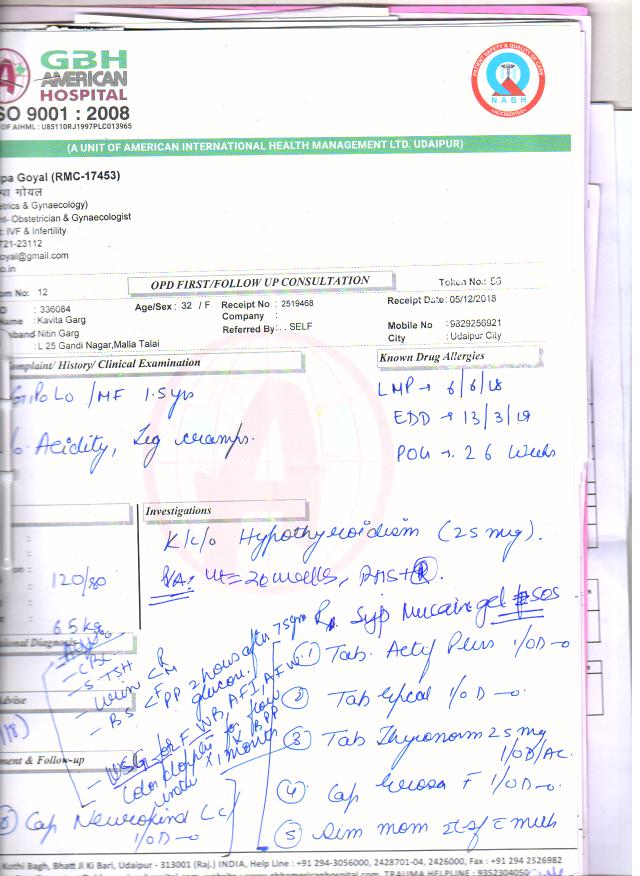 GBH
AMERICAN
HOSPITAL
SO 9001 : 2008
OF AIHML : U85110RJ1997PLC013965
PATIENT SAFETY & QUALITY OF CARE
NABH
ACCREDITED
(A UNIT OF AMERICAN INTERNATIONAL HEALTH MANAGEMENT LTD. UDAIPUR)
pa Goyal (RMC-17453)
पा गोयल
trics & Gynaecology)
nt- Obstetrician & Gynaecologist
t: IVF & Infertility
721-23112
oyal@gmail.com
o.in
OPD FIRST/FOLLOW UP CONSULTATION
Token No.: 56
om No: 12
D : 336084
Age/Sex : 32 / F
Receipt No : 2519468
Receipt Date: 05/12/2018
ame : Kavita Garg
Company :
Mobile No : 9829256921
sband Nitin Garg
Referred By : . SELF
City : Udaipur City
: L 25 Gandi Nagar,Malla Talai
omplaint/ History/ Clinical Examination
Known Drug Allergies
G1P0L0 /MF 1.5yrs
LMP → 6/6/18
EDD → 13/3/19
Acidity, Leg cramps.
POG → 26 Weeks
Investigations
K/c/o Hypothyroidism (25 mg).
120/80
65 kg
Ut = 26 weeks,
Syp Mucaine gel SOS
sional Diagnosis
- CBC
- S.TSH
- Urine < R M
- BS < F PP 2 hours after 75gm glucose.
- USG for FWB, AFI, 
Color doppler for flow
BPP
1 month
1) Tab. Acty Plus 1/OD - o
2) Tab 1/OD - o.
3) Tab Thyronorm 25 mg
1/OD/AC.
4) Cap F 1/OD - o.
5) mom
Advise
ment & Follow-up
Cap Neurokind LC
1/OD - o
Kothi Bagh, Bhatt Ji Ki Bari, Udaipur - 313001 (Raj.) INDIA, Help Line : +91 294-3056000, 2428701-04, 2426000, Fax : +91 294 2526982
TRAUMA HELPLINE : 9352304050